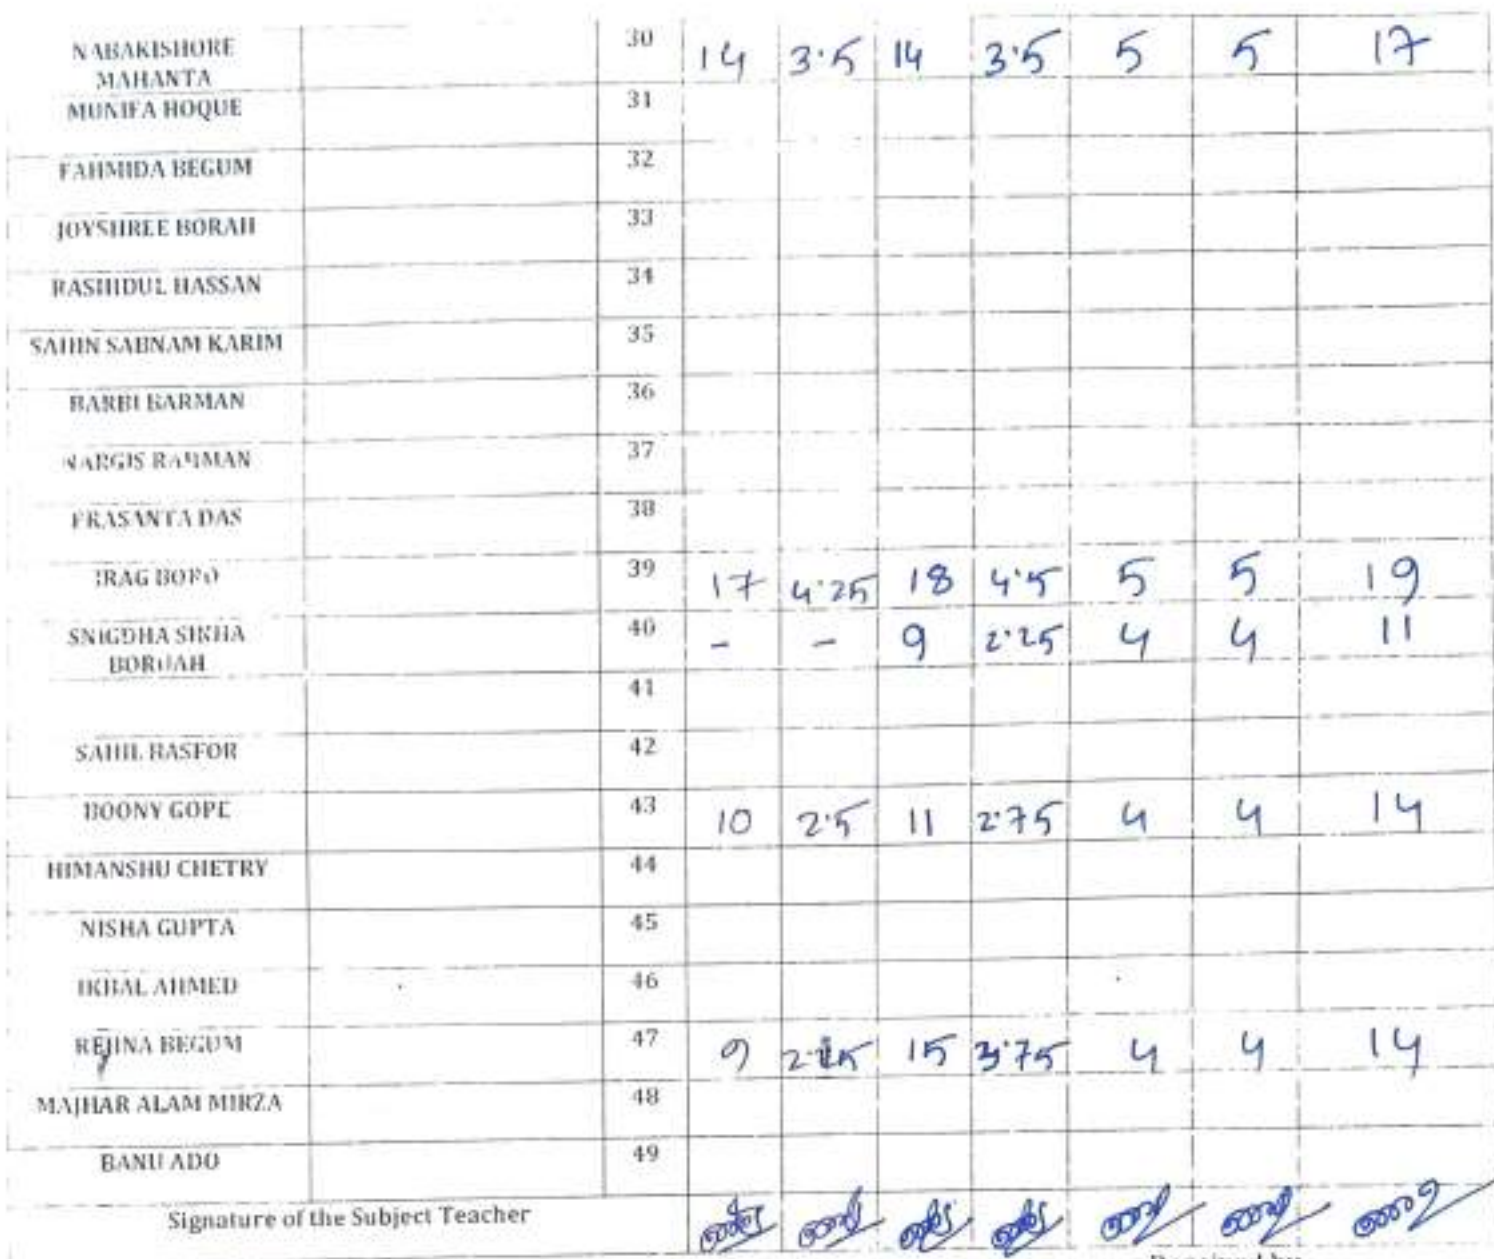 NABAKISHORE 30 14 3.5 14 3.5 5 5 17
MAHANTA
MUNIFA HOQUE 31
FAHMIDA BEGUM 32
JOYSHREE BORAH 33
RASHIDUL HASSAN 34
SAHIN SABNAM KARIM 35
BARBI BARMAN 36
NARGIS RAHMAN 37
PRASANTA DAS 38
IRAG BORO 39 17 4.25 18 4.5 5 5 19
SNIGDHA SIKHA 40 - - 9 2.25 4 4 11
BORUAH
41
SAHIL BASFOR 42
BOONY GOPE 43 10 2.5 11 2.75 4 4 14
HIMANSHU CHETRY 44
NISHA GUPTA 45
IKBAL AHMED 46
REJINA BEGUM 47 9 2.25 15 3.75 4 4 14
MAJHAR ALAM MIRZA 48
BANU ADO 49
Signature of the Subject Teacher